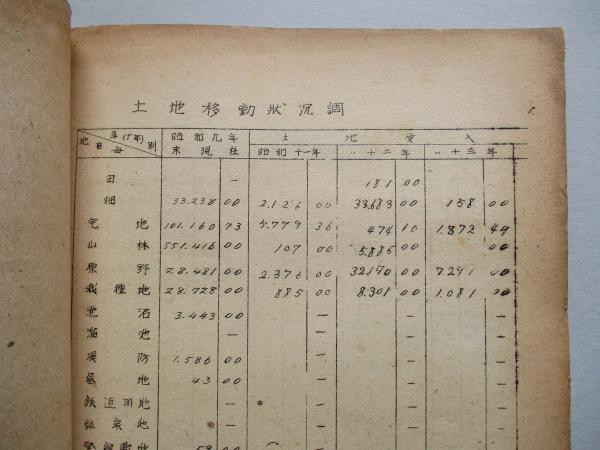 土地移動狀況調
地目 年(15年)毎 別 昭和九年 土地受入
末現在 昭和十一年 〃十二年 〃十三年
田 — 181 00
畑 33.238 00 2.126 00 33.683 00 158 00
宅地 101.160 73 5.779 36 474 10 1.872 49
山林 551.416 00 107 00 5.885 00 00
原野 28.481 00 2.376 00 32190 00 7.291 00
雑種地 28.728 00 885 00 8.301 00 1.081 00
池沼 3.443 00 — — —
溜池 — — — —
堤防 1.586 00 — — —
墓地 43 00 — — —
鉄道用地 — — — —
鉱泉地 — — — —
59 00